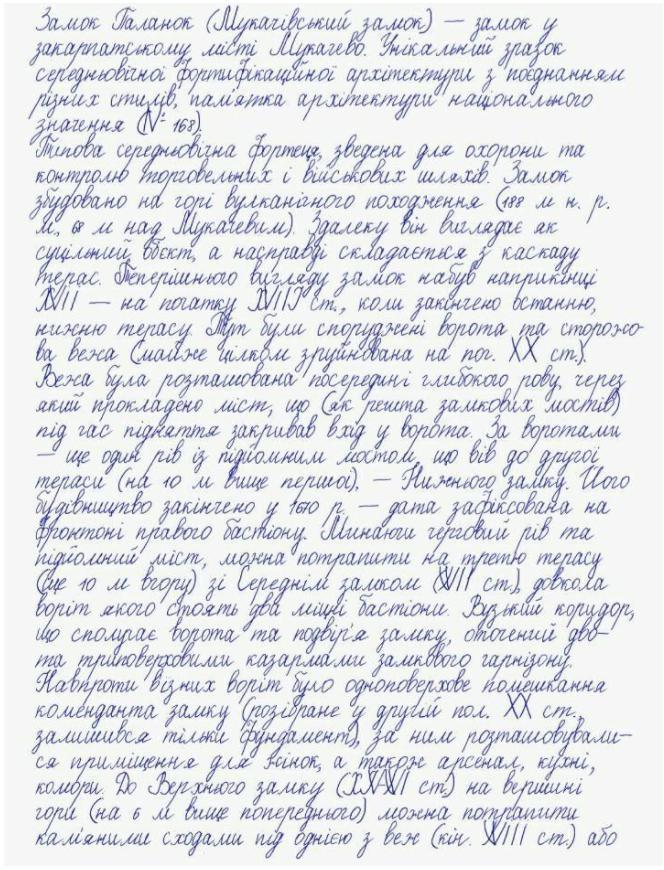 Замок Паланок (Мукачівський замок) — замок у
закарпатському місті Мукачево. Унікальний зразок
середньовічної фортифікаційної архітектури з поєднанням
різних стилів, пам'ятка архітектури національного
значення (№ 168).
Типова середньовічна фортеця, зведена для охорони та
контролю торговельних і військових шляхів. Замок
збудовано на горі вулканічного походження (188 м н. р.
м., 68 м над Мукачевим). Здалеку він виглядає як
суцільний об'єкт, а насправді складається з каскаду
терас. Теперішнього вигляду замок набув наприкінці
XVII — на початку XVIII ст., коли закінчено останню,
нижню терасу. Тут були споруджені ворота та сторожо-
ва вежа (майже цілком зруйнована на поч. XX ст.).
Вежа була розташована посередині глибокого рову, через
який прокладено міст, що (як решта замкових мостів)
під час підняття закривав вхід у ворота. За воротами
— ще один рів із підйомним мостом, що вів до другої
тераси (на 10 м вище першої), — Нижнього замку. Його
будівництво закінчено у 1670 р. — дата зафіксована на
фронтоні правого бастіону. Минаючи черговий рів та
підйомний міст, можна потрапити на третю терасу
(ще 10 м вгору) зі Середнім замком (XVII ст.), довкола
воріт якого стоять два міцні бастіони. Вузький коридор,
що сполучає ворота та подвір'я замку, оточений дво-
та триповерховими казармами замкового гарнізону.
Навпроти в'їзних воріт було одноповерхове помешкання
коменданта замку (розібране у другій пол. XX ст.,
залишився тільки фундамент), за ним розташовували-
ся приміщення для жінок, а також арсенал, кухні,
комори. До Верхнього замку (XIV-XVI ст.) на вершині
гори (на 6 м вище попереднього) можна потрапити
кам'яними сходами під однією з веж (кін. XVIII ст.) або